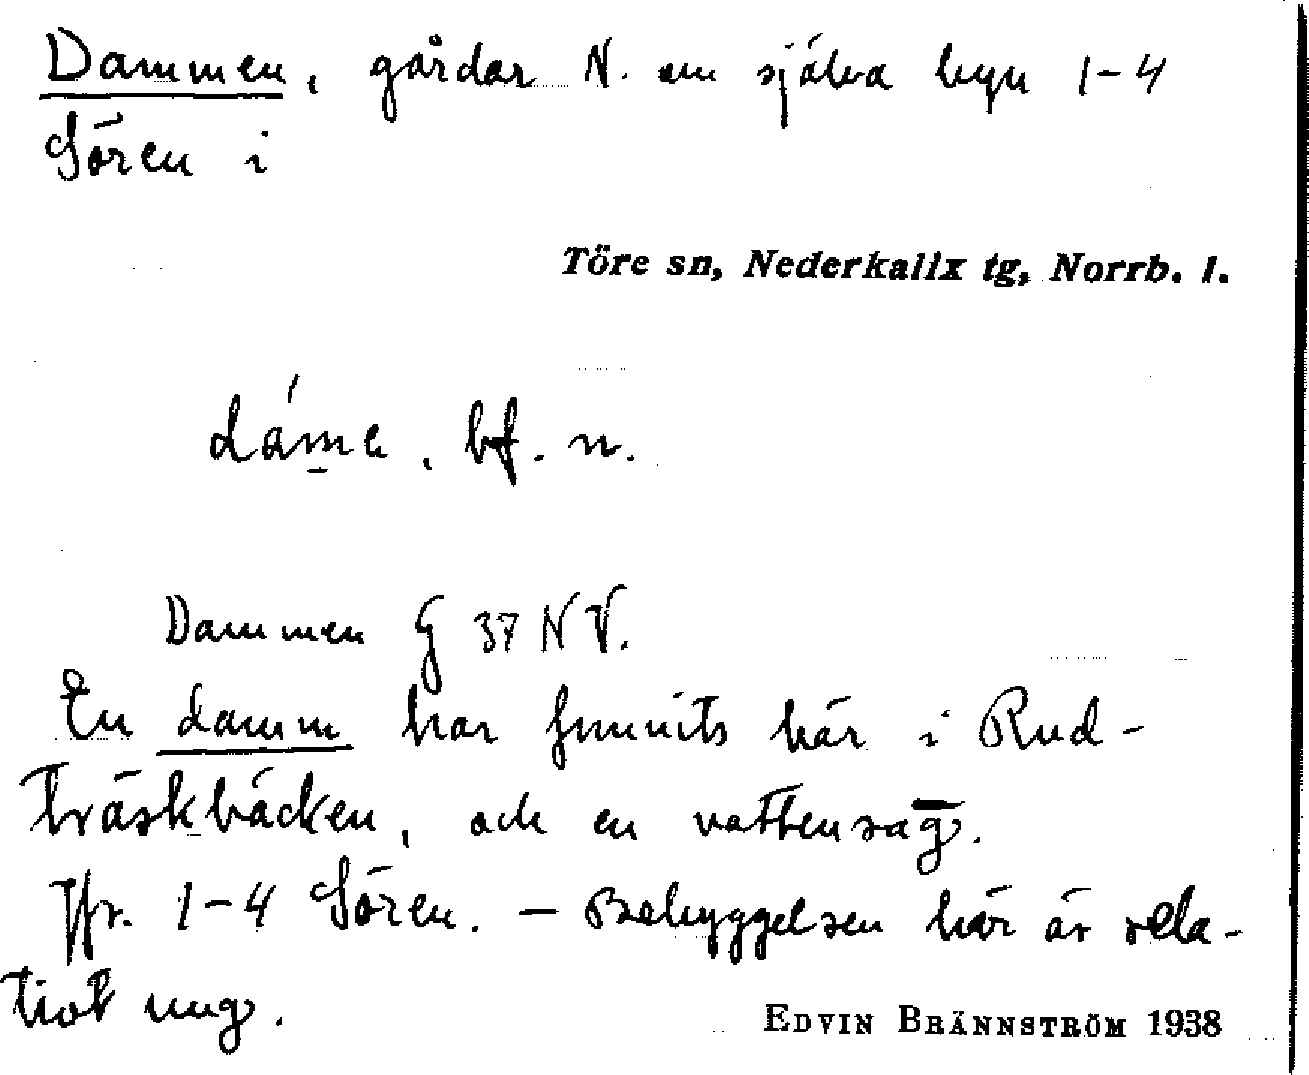 Dammen, gårdar N. om själva byn 1-4
Sören i
Töre sn, Nederkalix tg, Norrb. l.
dáma, bf. n.
Dammen G 37 NV.
En damm har funnits här i Rud-
träskbäcken, och en vattensåg.
Jfr. 1-4 Sören. — Bebyggelsen här är rela-
tivt ung.
EDVIN BRÄNNSTRÖM 1938